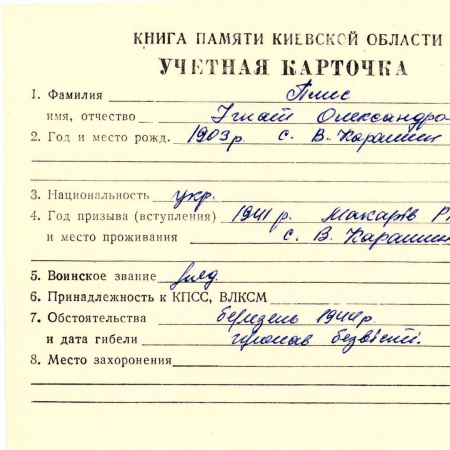 КНИГА ПАМЯТИ КИЕВСКОЙ ОБЛАСТИ
УЧЕТНАЯ КАРТОЧКА
1. Фамилия Плис
имя, отчество Ігнат Олександро
2. Год и место рожд. 1903р. с. В. Карашин
3. Национальность укр.
4. Год призыва (вступления) 1941 р. Макарів Р
и место проживания с. В. Карашин
5. Воинское звание ряд.
6. Принадлежность к КПСС, ВЛКСМ
7. Обстоятельства березень 1944р.
и дата гибели пропав безвісті.
8. Место захоронения